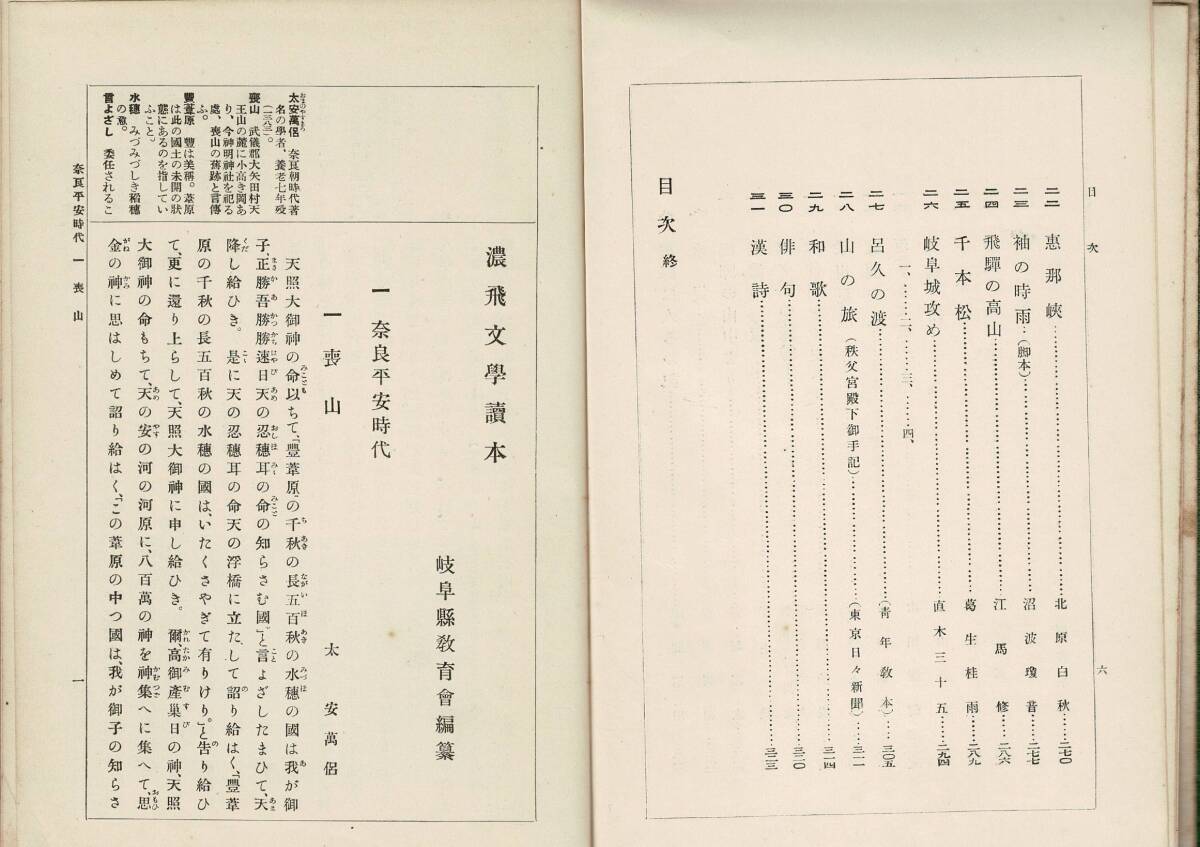 目次
六
二二 惠那峽……北原白秋……二七〇
二三 袖の時雨…(脚本)……沼波瓊音……二七七
二四 飛驒の高山……江馬修……二八六
二五 千本松……葛生桂雨……二八九
二六 岐阜城攻め……直木三十五……二九四
一、……二、……三、……四、
二七 呂久の渡……(靑年敎本)……三〇五
二八 山の旅(秩父宮殿下御手記)……(東京日々新聞)……三一一
二九 和歌……三一四
三〇 俳句……三二〇
三一 漢詩……三二三
目次 終
太安萬侶 奈良朝時代著
名の學者、養老七年歿
(一三八三)。
喪山 武儀郡大矢田村天
王山の麓に小高き岡あ
り、今神明神社を祀る
處、喪山の舊跡と言傳
ふ。
豐葦原 豐は美稱。葦原
は此の國土の未開の狀
態にあるのを指してい
ふこと。
水穗 みづみづしき稻穗
の意。
言よざし 委任されるこ
濃飛文學讀本
岐阜縣敎育會編纂
一 奈良平安時代
一 喪山
太安萬侶
天照大御神の命以ちて、「豐葦原の千秋の長五百秋の水穗の國は我が御
子、正勝吾勝勝速日天の忍穗耳の命の知らさむ國」と言よざしたまひて、天
降し給ひき。是に天の忍穗耳の命天の浮橋に立たして詔り給はく、「豐葦
原の千秋の長五百秋の水穗の國は、いたくさやぎて有りけり。」と告り給ひ
て、更に還り上らして、天照大御神に申し給ひき。爾高御產巢日の神、天照
大御神の命もちて、天の安の河の河原に、八百萬の神を神集へに集へて、思
金の神に思はしめて詔り給はく、「この葦原の中つ國は、我が御子の知らさ
奈良平安時代 一 喪山
一